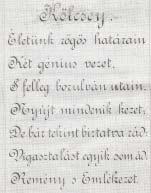 Kölcsey.
Életünk rögös határain
Két génius vezet,
S felleg borulván utain,
Nyújt mindenik kezet;
De bár tekint biztatva rád:
Vigasztalást egyik sem ád.
Remény s Emlékezet.